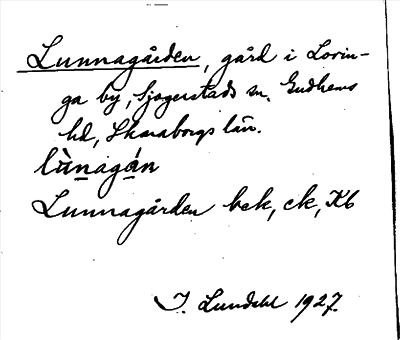 Lunnagården, gård i Lovin-
ga by, Sjogerstads sn. Gudhems
hd, Skaraborgs län.
lùnagán
Lunnagården bek, ck, Kb
I. Lundahl 1927.